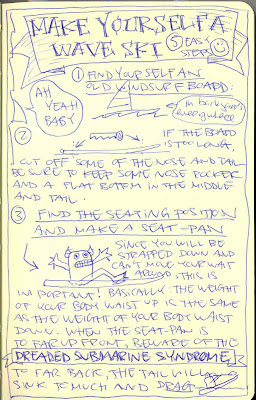 MAKE YOURSELF A
WAVE SKI
5 EASY
STEPS
1 FIND YOURSELF AN
OLD WINDSURF BOARD:
AH
YEAH
BABY
2
IF THE BOARD
IS TOO LONG,
CUT OFF SOME OF THE NOSE AND TAIL
BE SURE TO KEEP SOME NOSE ROCKER
AND A FLAT BOTOM IN THE MIDDLE
AND TAIL.
3 FIND THE SEATING POSITION
AND MAKE A SEAT-PAN
SINCE YOU WILL BE
STRAPPED DOWN AND
CAN'T MOVE YOUR WAIT
AROUND, THIS IS
IMPORTANT! BASICALLY THE WEIGHT
OF YOUR BODY WAIST UP IS THE SAME
AS THE WEIGHT OF YOUR BODY WAIST
DOWN. WHEN THE SEAT-PAN IS
TO FAR UP FRONT, BEWARE OF THE
DREADED SUBMARINE SYNDROME
TO FAR BACK, THE TAIL WILL
SINK TO MUCH AND DRAG